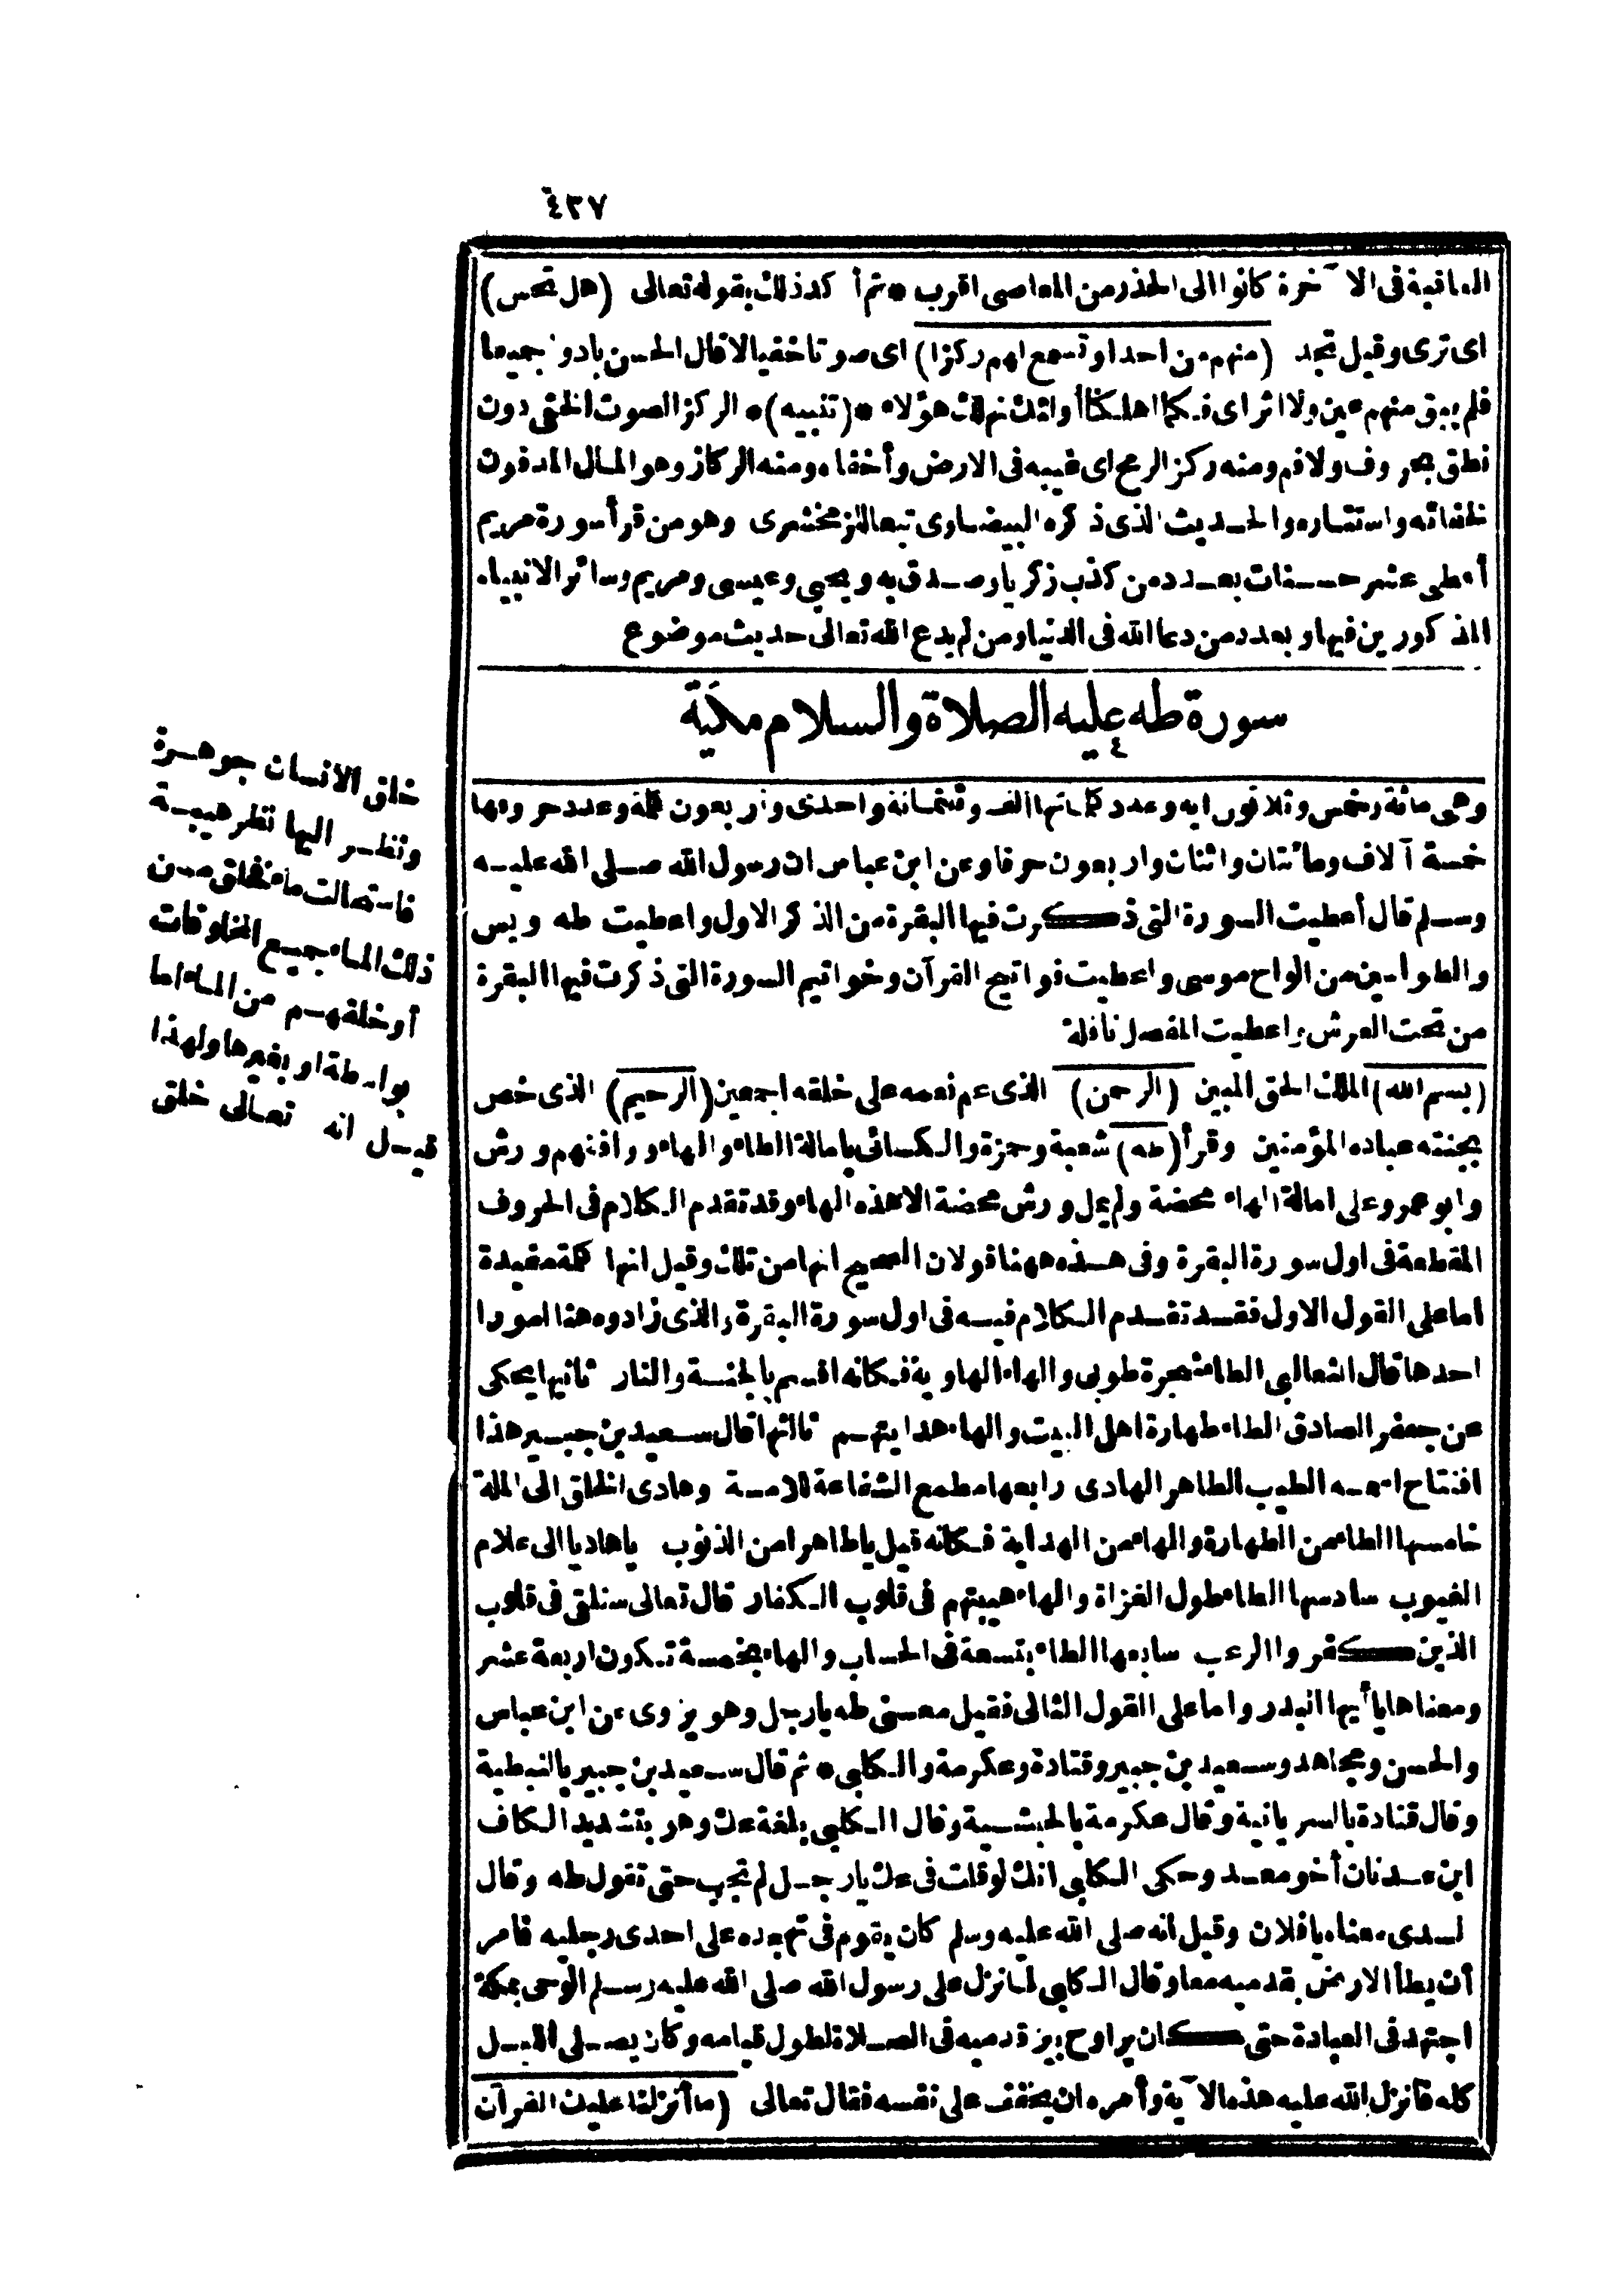 ٤٣٧
العاقبة فى الا ٓخرة كانوا الى الحذر من المعاصى اقرب * ثم أ كد ذلك بقوله تعالى (هل تحس)
اى ترى وقيل تجد (منهم من احد او تسمع لهم ركزا) اى صوتا خفيا لا قال الحسن بادوا جميعا
فلم يبق منهم عين ولا اثر اى فـكما اهلـكنا أولئك نهلك هؤلاء * (تنبيه) * الركز الصوت الخفى دون
نطق بحروف ولا فم ومنه ركز الرمح اى غيبه فى الارض وأخفاه ومنه الركاز وهو المال المدفون
لخفائه واستتاره والحديث الذى ذ كره البيضاوى تبعا للزمخشرى وهو من قرأ سورة مريم
أعطى عشر حسنات بعدد من كذب زكريا وصدق به ويحيى وعيسى ومريم وسائر الانبياء
المذ كورين فيها وبعدد من دعا الله فى الدنيا ومن لم يدع الله تعالى حديث موضوع
سورة طه عليه الصلاة والسلام مكية
٤
وهى مائة وخمس وثلاثون ايه وعدد كلماتها الف وثلثمائة واحدى واربعون كلمة وعدد حروفها
خمسة آلاف ومائتان واثنان واربعون حرفا وعن ابن عباس ان رسول الله صلى الله عليه
وسلم قال أعطيت السورة التى ذكرت فيها البقرة من الذ كر الاول واعطيت طه ويس
والطواسين من الواح موسى واعطيت فواتيح القرآن وخواتيم السورة التى ذ كرت فيها البقرة
من تحت العرش واعطيت المفصل نافلة
(بسم الله) الملك الحق المبين (الرحمن) الذى عم نعمه على خلقه اجمعين (الرحيم) الذى خص
بجنته عباده المؤمنين وقرأ (طه) شعبة وحمزة والـكسائى بامالة الطاء والهاء ووافقهم ورش
وابو عمرو على امالة الهاء محضة ولم يمل ورش محضة الا هذه الهاء وقد تقدم الـكلام فى الحروف
المقطعة فى اول سورة البقرة وفى هذه ههنا قولان الصحيح انها من تلك وقيل انها كلمة مفيدة
اما على القول الاول فقد تقدم الـكلام فيه فى اول سورة البقرة والذى زادوه هنا امورا
احدها قال الثعالبى الطاء شجرة طوبى والهاء الهاوية فـكانه اقسم بالجنة والنار ثانيها يحكى
عن جعفر الصادق الطاء طهارة اهل البيت والهاء هدايتهم ثالثها قال سعيد بن جبير هذا
افتتاح اسمه الطيب الطاهر الهادى رابعها مطمع الشفاعة للامة وهادى الخلق الى الملة
خامسها الطاء من الطهارة والهاء من الهداية فـكانه قيل ياطاهرا من الذنوب ياهاديا الى علام
الغيوب سادسها الطاء طول الغزاة والهاء هيبتهم فى قلوب الـكفار قال تعالى سنلقى فى قلوب
الذين كفروا الرعب سابعها الطاء بتسعة فى الحساب والهاء بخمسة تـكون اربعة عشر
ومعناها يا أيها البدر واما على القول الثانى فقيل معنى طه يارجل وهو يروى عن ابن عباس
والحسن ومجاهد وسعيد بن جبير وقتادة وعكرمة والـكلبى * ثم قال سعيد بن جبير بالنبطية
وقال قتادة بالسريانية وقال عكرمة بالحبشية وقال الـكلبى بلغة عك وهو بتشديد الـكاف
ابن عدنان أخو معد وحكى الـكلبى انك لو قلت فى عك يارجل لم تجب حتى تقول طه وقال
السدى معناه يافلان وقيل انه صلى الله عليه وسلم كان يقوم فى تهجده على احدى رجليه فامر
أن يطأ الارض بقدميه معا وقال الـكلبى لما نزل على رسول الله صلى الله عليه وسلم الوحى بمكة
اجتهد فى العبادة حتى كان يراوح بين قدميه فى الصلاة لطول قيامه وكان يصلى الليل
كله فانزل الله عليه هذه الا ٓية وأمره ان يخفف على نفسه فقال تعالى (ما أنزلنا عليك القرآن
خلق الانسان جوهرة
ونظر اليها نظر هيبة
فاستحالت ماء نخلق من
ذلك الماء جميع المخلوقات
أو خلقهم من الماء اما
بواسطة او بغيرها ولهذا
قيل انه تعالى خلق